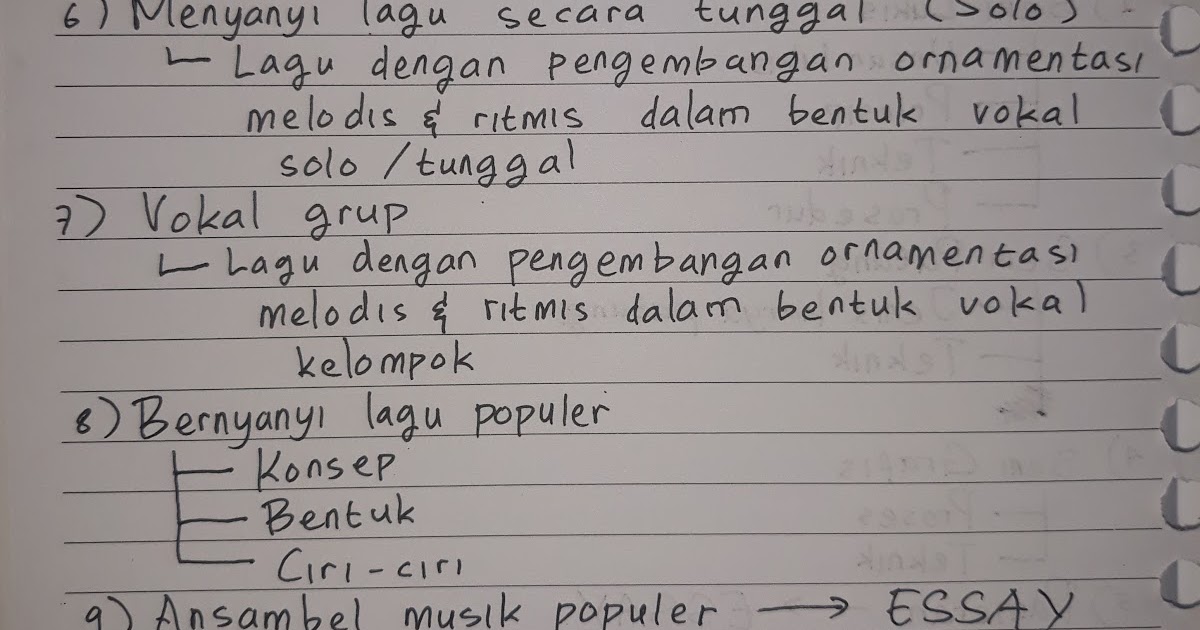 6) Menyanyi lagu secara tunggal (solo)
Lagu dengan pengembangan ornamentasi
melodis & ritmis dalam bentuk vokal
solo / tunggal
7) Vokal grup
Lagu dengan pengembangan ornamentasi
melodis & ritmis dalam bentuk vokal
kelompok
8) Bernyanyi lagu populer
Konsep
Bentuk
Ciri-ciri
9) Ansambel musik populer → ESSAY